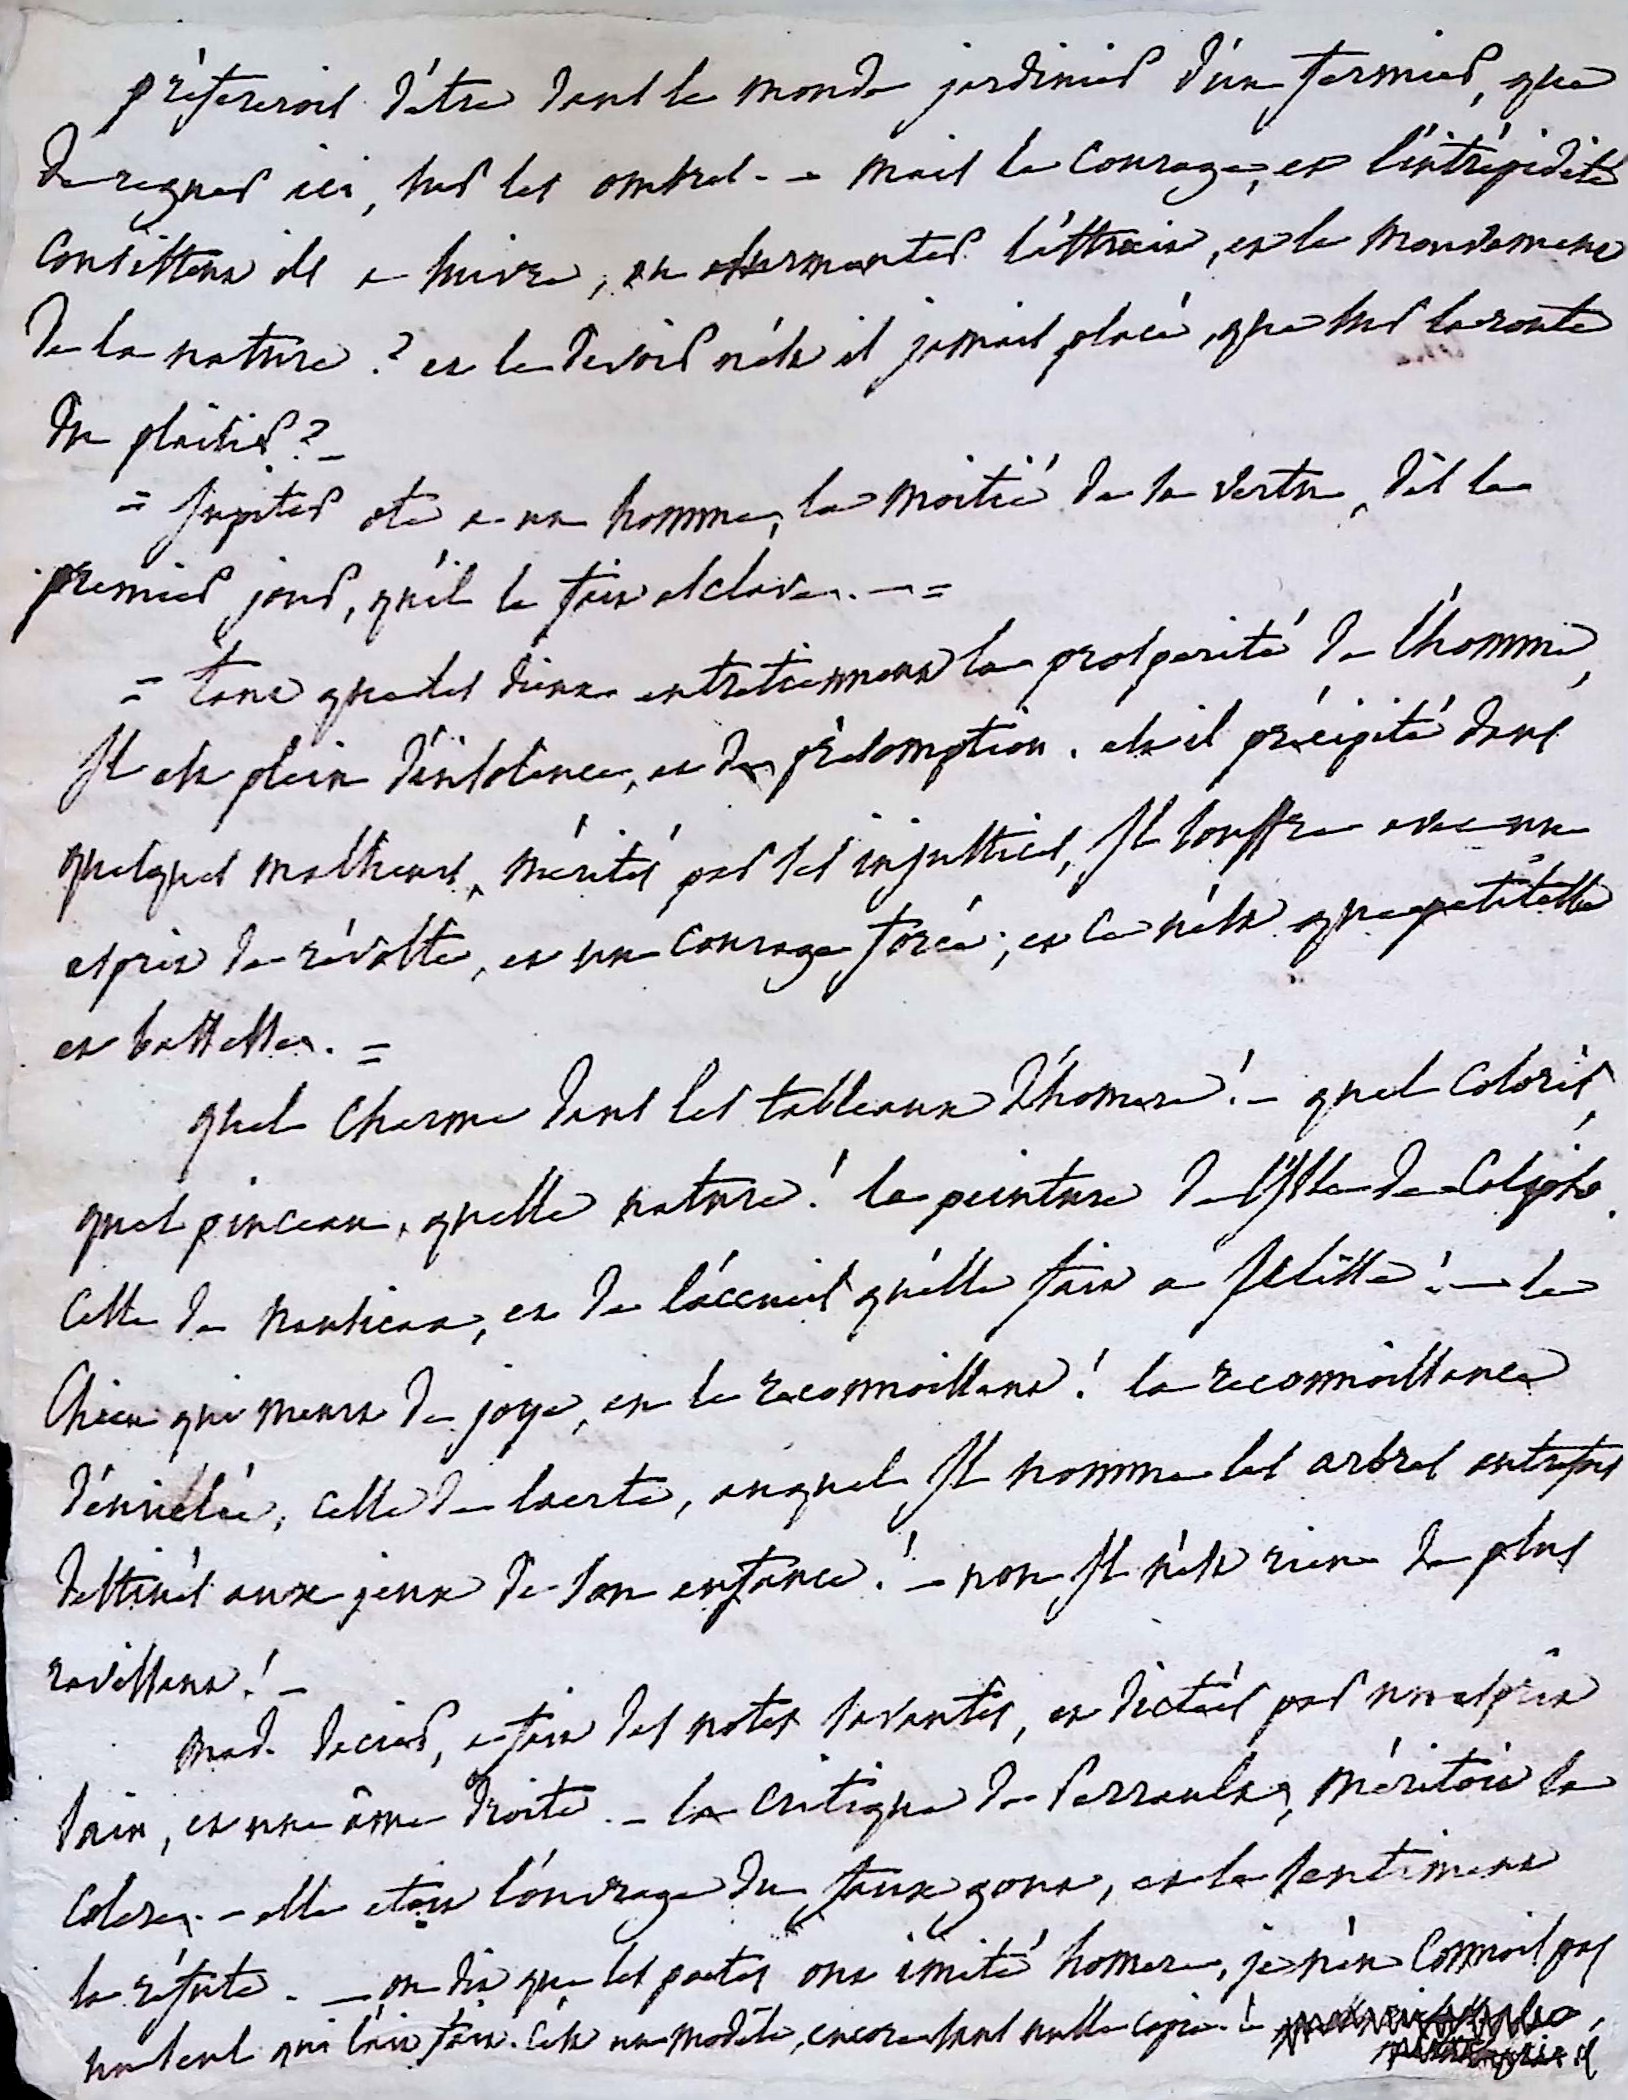 préfererois d'être dans le monde jardinier d'un fermier, que
de regner ici, sur les ombres. - mais le courage, et l'intrépidité
consistent ils a suivre, en surmonter l'attrait, et le mouvement
de la nature ? et le devoir n'est il jamais placé, que sur la route
du plaisir ? -
= Jupiter ote a un homme, la moitié de sa vertu, dès le
premier jour, qu'il le fait esclave. - =
= tant que les dieux entretiennent la prosperité de l'homme,
Il est plein d'insolence, et de présomption. est il précipité dans
quelques malheurs, mérités par ses injustices, Il souffre avec un
esprit de révolte, et un courage forcé ; et ce n'est que petitesse
et bassesse. =
quel charme dans les tableaux d'homere ! - quel coloris,
quel pinceau, quelle nature ! la peinture de l'Isle de Calipso.
celle de Nausicaa, et de l'accueil qu'elle fait a Ulisse ! - le
chien qui meurt de joye, en le reconnoissant ! la reconnoissance
d'euriclée, celle de laerte, auquel Il nomme les arbres autrefois
destinés aux jeux de son enfance ! - non Il n'est rien de plus
ravissant ! -
mad. dacier, a fait des notes savantes, et dictées par un esprit
sain, et une âme droite. - la critique de Perrault, méritoit sa
colere. - elle etoit l'ouvrage du faux gout, et le sentiment
la réfute. - on dit que les poetes ont imité homere, je n'en connois pas
un seul qui l'ait fait. c'est un modèle, encore sans nulle copie. -